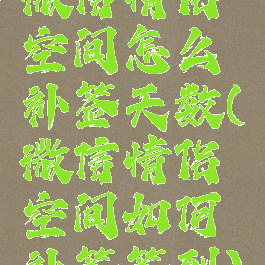 微信情侣
空间怎么
补签天数(
微信情侣
空间如何
补签签到)